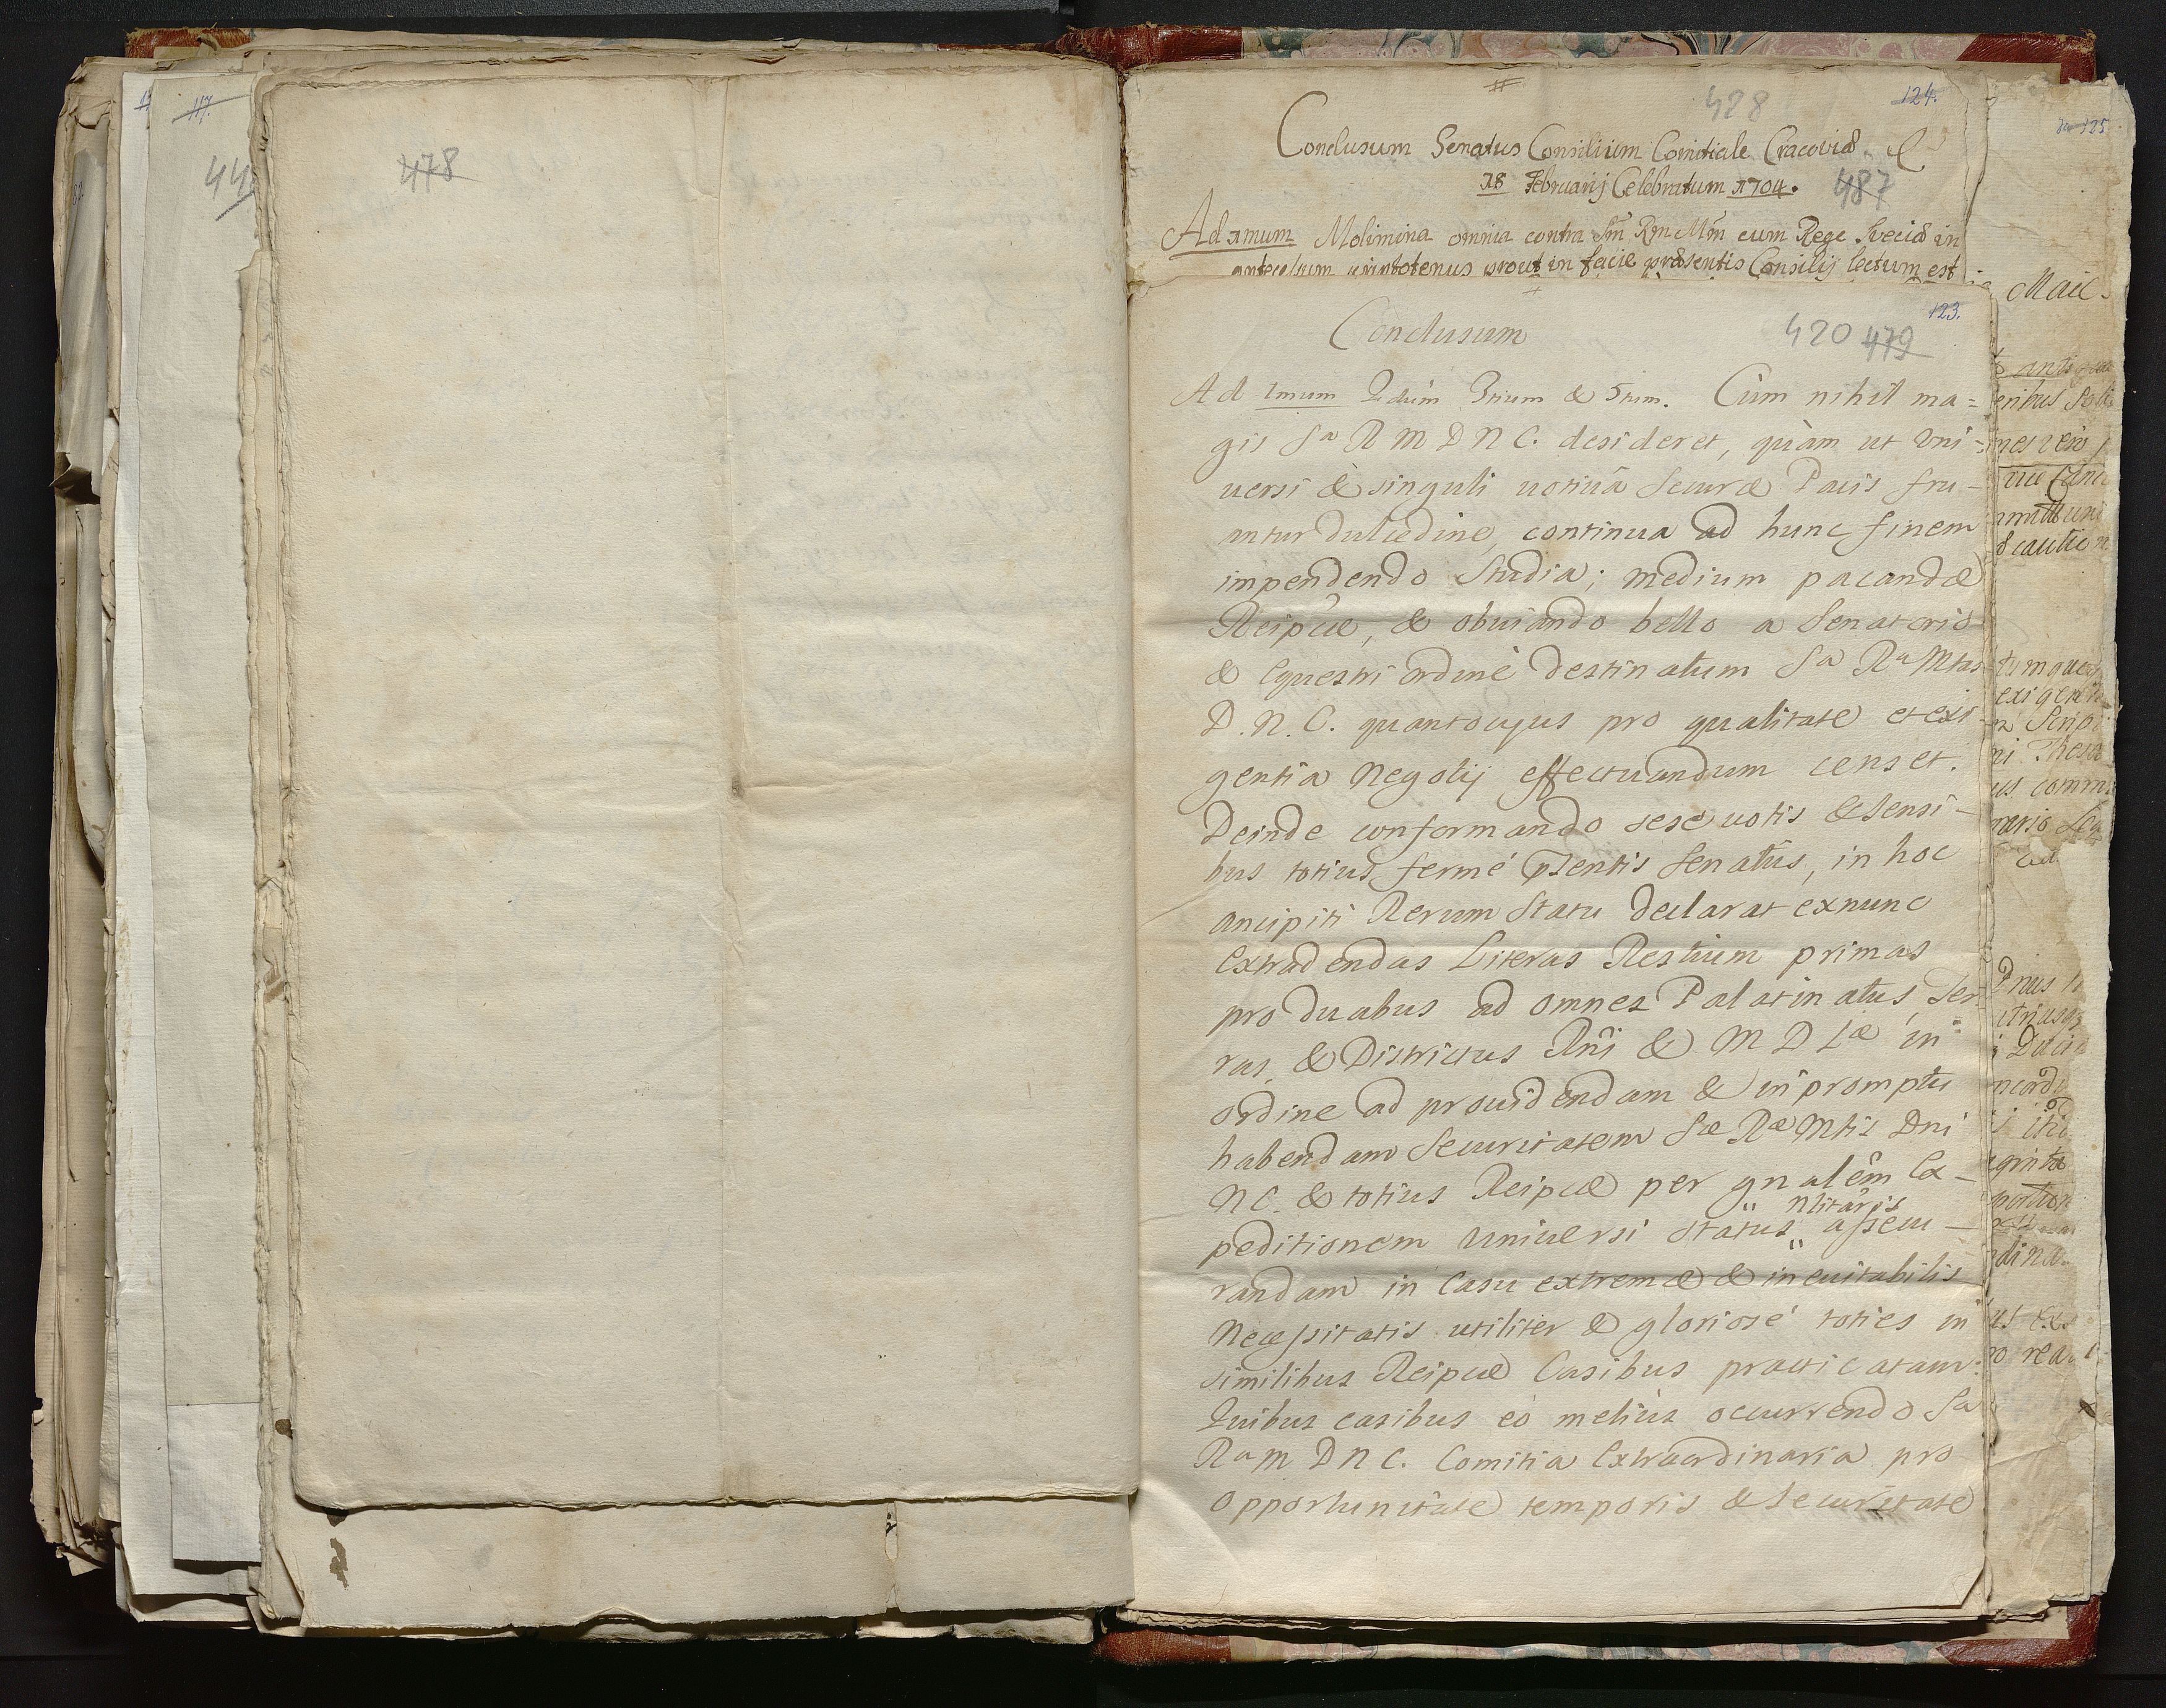 117.
44
478
428
124.
Conclusum Senatus Consilium Comitiale Cracoviæ
18 Februarij Celebratum 1704.
487
Ad 1mum Molimina omnia contra Sm Rm Mm cum Rege Sveciæ in
antecessum punctotenus prout in facie præsentis Consilij lectum est
123.
Conclusum
420 479
Ad 1mum 2dum 3tium & 5tum. Cùm nihil ma=
gis Sa R M D N C. desideret, quàm ut Vni=
uersi & singuli uotiuâ Securæ Pacis fru-
antur dulcedine, continua ad hunc finem
impendendo Studia; medium pacandæ
Reipcæ, & obuiando bello a Senatorio
& Equestri ordine destinatum Sa Ra Mtas
D. N. C. quantocyus pro qualitate et exi-
gentia Negotij effectuandum censet.
Deinde conformando sese uotis & Sensi-
bus totius fermè pñtis Senatûs, in hoc
ancipiti Rerum Statu declarat exnunc
Extradendas Literas Restium primas
pro duabus ad omnes Palatinatus, Ter
ras, & Districtus Rni & M D Læ in
ordine ad prouidendam & in promptu
habendam Securitatem Sæ Ræ Mtis Dni
NC. & totius Reipcæ per gnalêm Ex-
peditionem Uniuersi Status „ Nlitaris „ assecu-
randam in Casu extremæ & ineuitabilis
Necessitatis utiliter & gloriosè toties in
similibus Reipcæ Casibus practicatam:
Quibus casibus eò meliùs occurrendo Sa
Ra M D N C. Comitia Extraordinaria pro
opportunitate temporis & Securitate
125
Maie